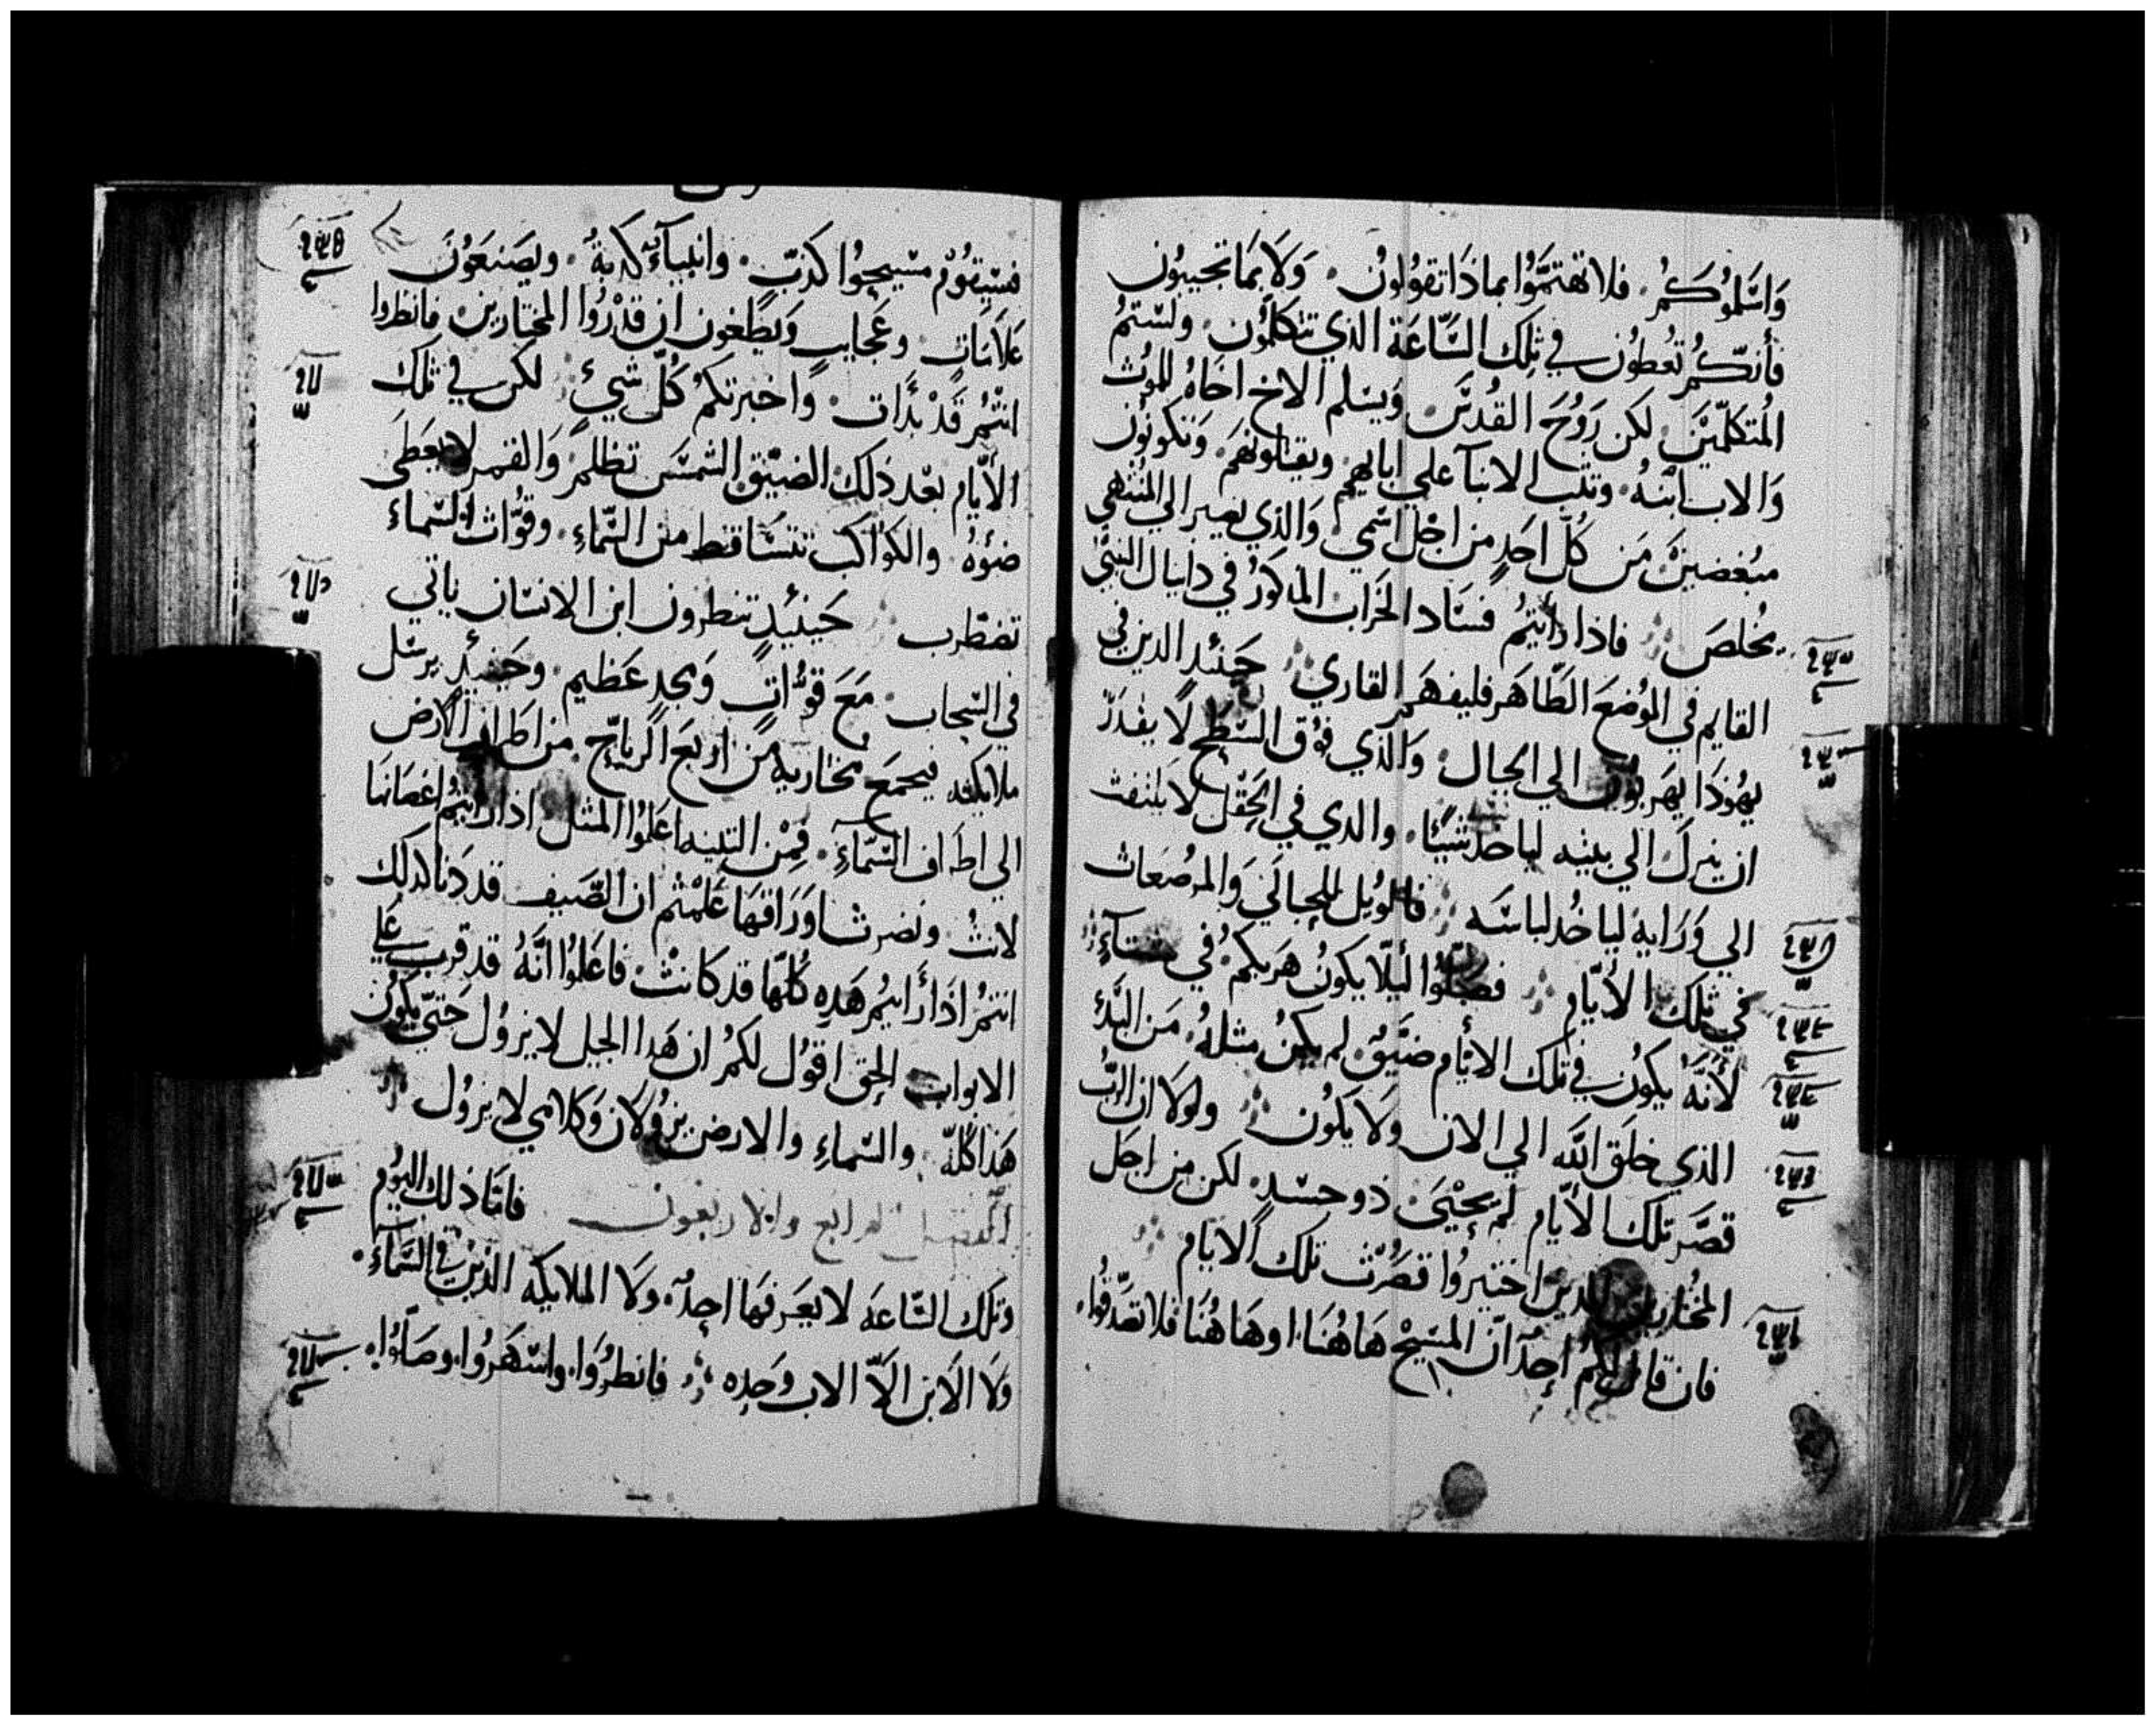 وَاسَّلمُوكُمُ. فلا تهتمَّوُا بماذَا تقوُلونُ. وَلَا بمَا تجيبوُن
فأنكّمُ تعُطوُن في تلِك السَّاعَة الذي تتكلمَّون. ولسَتمُ
المُتكلمّيَن. لكن رَوُحَ القدُسَّ. وَيسَلم الاخ اخَاهُ للموُت
وَالاب ابنهُ. وتثب الابنآ علي ابايهم. ويقتلونهَم. وَتكونوُن
مبُغضينَ مَن كلّ احَدٍ من اجْل اسْمي. وَالذي يصبر الي المُنتهي
يخُلصَ. فاذا رأيتمُ فسَاد الخَرَاب المذكورُ في دانيال النبيّ
القايم في الموُضعَ الطَّاهَر فليفهَم القاري. حيَنئد الدين في
يهُوذَا يهَربوُن الي الجبال. وَالذي فوْق السَّطح لَا يقدَرّ
ان ينزلَ الي بيته لياخدُ شَيًئا. والدي في الحَقْل لا يلتفت
الي وَرَايه لياخُد لباسَه. فالوَيل للحبالَي وَالمرضَعات
في تلِك الأيّام. فصَلوّا ليَلّا يكونُ هَربكمُ في شتآءٍ
لأنَّهُ يكوُن في تلك الايأم ضيَقٌ. لم يكنُ مثلهُ. مَن البَدُء
الذي خلقَ اللَه الي الان وَلَا يكوُن. ولولَا ان الربّ
قصَّر تلك الأيام لمَ يحْيَىَ ذو جسَد. لكن من اجَل
المخُتارين الدين اختيروُا قصَرُّت تلك الايام
فان قال لكمُ احدٌ انّ المسَيحْ هَاهُنَا. اوهَاهُنَا فلا تصَدّقوُا.
فسَيقوُمْ مسَيحوُا كذبٍ. وانبيآء كدبةُ. ويصَنعَوُنَ
علَامَاتٍ. وعَجايبٍ وَيطَغون ان قدْرُوا المختارين. فانظروا
انتُمُ قَدْ بَدَأت. وَاخبرتكمُ كلُّ شيءٍ. لكن في تلك
الأيّام بعَد ذلك الضيَق الشمسَ تظلمُ. وَالقمر لا يعَطَي
ضوْهُ. والكواكب تتسَاقط من السَّماءِ. وقوُّات السَّماء
تضطرب. حَينيَدٍ تنظرون ابن الانسَان ياتي
في السَحاب. مَعَ قوُّاتٍ وَمجدٍ عَظيم. وحَينيَدٍ يرسَل
ملايكته فيجمعَ مختاريه مَن اربَع الريَاحَّ. من اطراف الأرض
الي اطراف السَّمآءِ. فِمْن التينه اعَلمُوا المثل اذا رايتمُ اغصَانهَا
لانتُ. ونضرت اورَاقهَا عَلمْتمُ ان الصَّيف قد دَنا كدلك
انتمُ اذَا رأَايتمُ هَدِه كلُّها قد كانتْ. فاعَلموُا انَّهُ قد قرب علي
الابواب الحق اقوُل لكمُ ان هَدا الجيل لا يزوُل حَتيّ يكوُن
هَذا كُلهّ. والسَماءِ والارض يزوُلَان وَكلامي لا يزوُل
الفصل الرابع والاربعون فامَّا ذلك اليوُم
وتلك السَّاعَه لا يعَرفهَا احدٌ. ولَا الملايكه الذيَن في السَّمآءَ.
ولَا الابن الَاّ الاب وَحدِه. فانظرُوَا. واسَهَروُا. وصَلوّا.